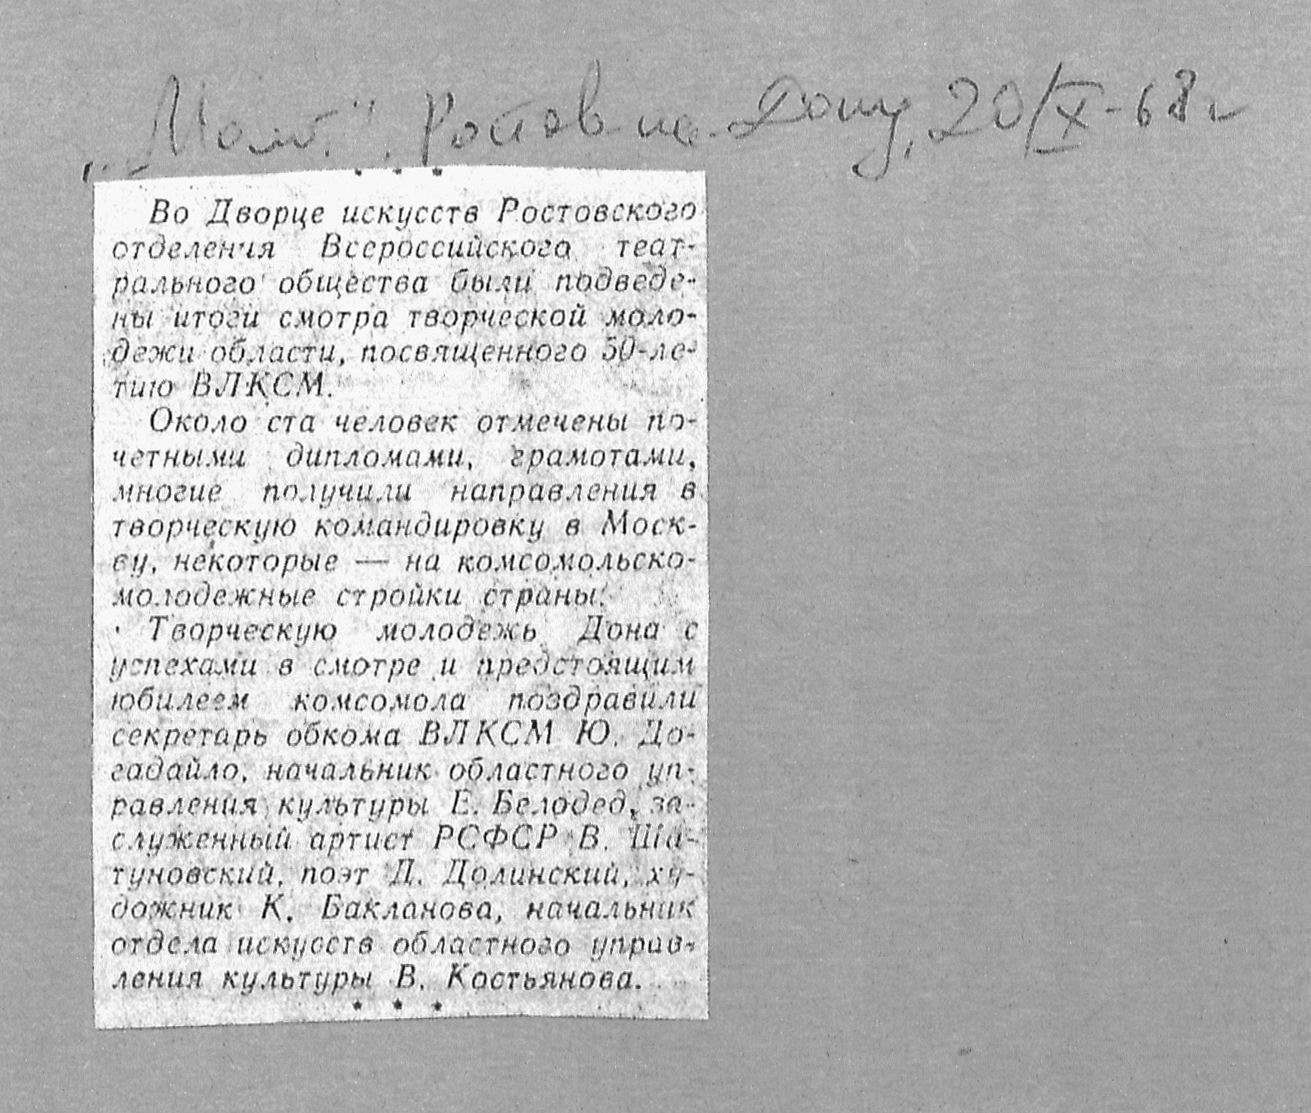 „Молот". Ростов-на-Дону, 20/X-68 г
* * *
Во Дворце искусств Ростовского
отделения Всероссийского теат-
рального общества были подведе-
ны итоги смотра творческой моло-
дежи области, посвященного 50-ле-
тию ВЛКСМ.
Около ста человек отмечены по-
четными дипломами, грамотами,
многие получили направления в
творческую командировку в Моск-
ву, некоторые — на комсомольско-
молодежные стройки страны.
Творческую молодежь Дона с
успехами в смотре и предстоящим
юбилеем комсомола поздравили
секретарь обкома ВЛКСМ Ю. До-
гадайло, начальник областного уп-
равления культуры Е. Белодед, за-
служенный артист РСФСР В. Ша-
туновский, поэт Д. Долинский, ху-
дожник К. Бакланова, начальник
отдела искусств областного управ-
ления культуры В. Костьянова.
* * *